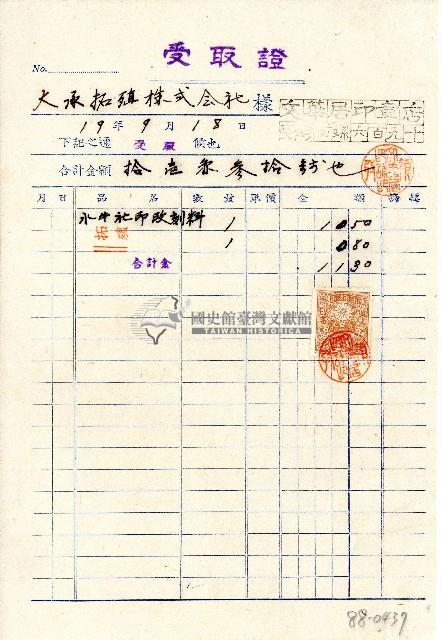 受取證
No.
大承拓殖株式会社 樣
文華居印章店
19年9月18日
下記之通 受取 候也
合計金額 拾壱円参拾銭也
月 日 品名 數量 單價 金額 摘要
水牛社印改刻料 1 1050
拓殖 1 080
合計金 1130
國史館臺灣文獻館
TAIWAN HISTORICA
88-0437